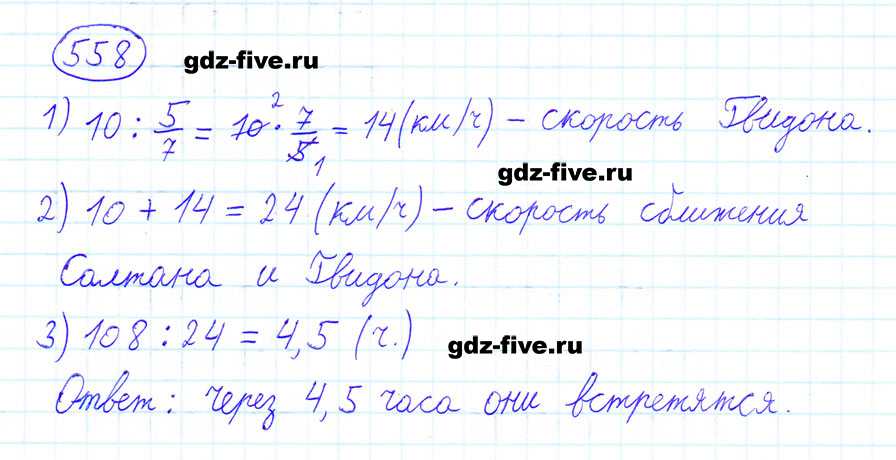 558
gdz-five.ru
1) 10 : 5/7 = 10² · 7/5₁ = 14 (км/ч) – скорость Гвидона.
gdz-five.ru
2) 10 + 14 = 24 (км/ч) – скорость сближения
Салтана и Гвидона.
3) 108 : 24 = 4,5 (ч.)
gdz-five.ru
Ответ: через 4,5 часа они встретятся.